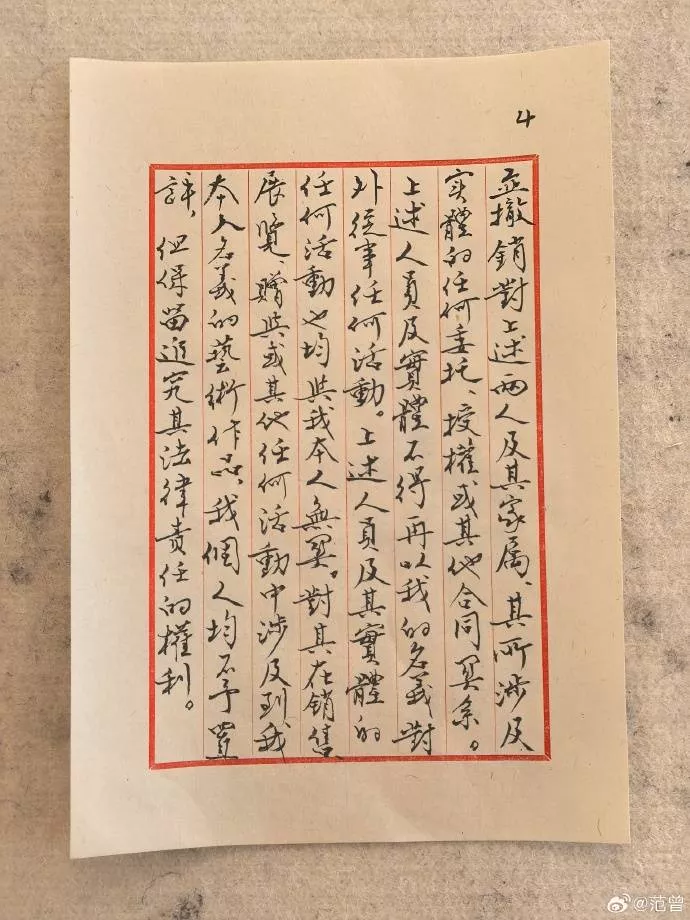 4
並撤銷對上述两人及其家属、其所涉及
实體的任何委托、授權或其他合同関系。
上述人員及實體不得再以我的名義對
外從事任何活動。上述人員及其實體的
任何活動也均與我本人無関。對其在銷售
展覽、贈與或其他任何活動中涉及到我
本人名義的藝術作品,我個人均不予置
評,但保留追究其法律責任的權利。
@范曾